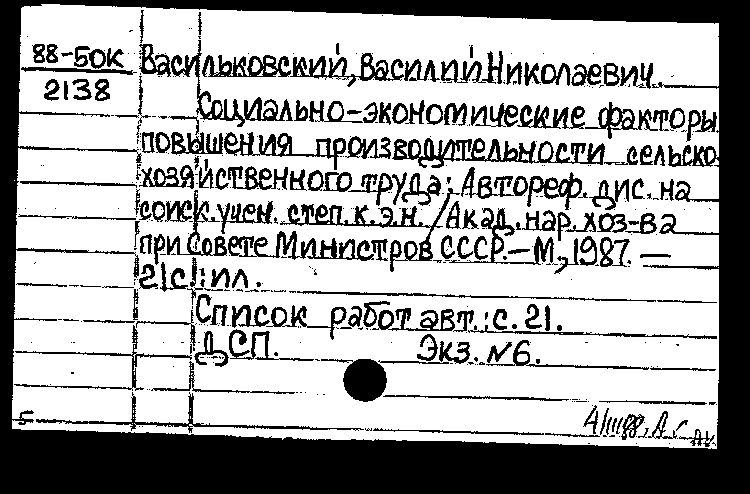 88-50К
2138
Васильковский, Василий Николаевич.
Социально-экономические факторы
повышения производительности сельско-
хозяйственного труда: Автореф. дис. на
соиск. учен. степ. к.э.н. / Акад. нар. хоз-ва
при Совете Министров СССР. — М., 1987. —
21с.: ил.
Список работ авт.: с. 21.
ДСП. Экз. №6.
5